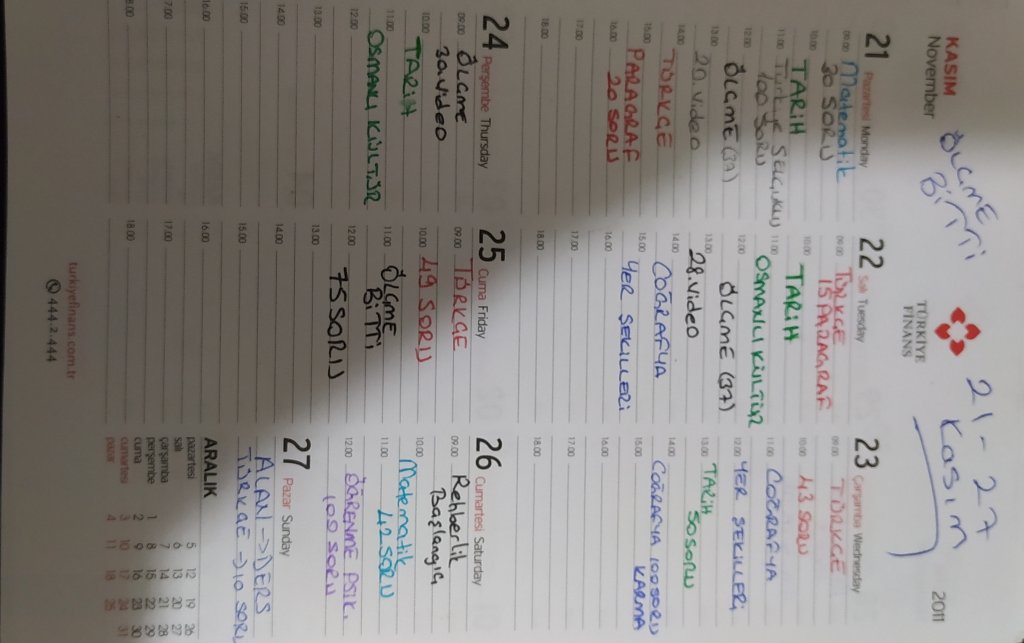 KASIM
November
ÖLÇME
BİTTİ
TÜRKİYE
FİNANS
21 - 27
Kasım
2011
21 Pazartesi Monday
09.00 Matematik
20 SORU
10.00 TARİH
11.00 Türkiye SELÇUKLU
100 SORU
12.00 ÖLÇME (37)
13.00 20.Video
14.00 TÜRKÇE
15.00 PARAGRAF
16.00 20 SORU
17.00
18.00
22 Salı Tuesday
09.00 TÜRKÇE
15 PARAGRAF
10.00 TARİH
11.00 OSMANLI KÜLTÜR
12.00 ÖLÇME (37)
13.00 28.Video
14.00 COĞRAFYA
15.00 YER ŞEKİLLERİ
16.00
17.00
18.00
23 Çarşamba Wednesday
09.00 TÜRKÇE
10.00 43 SORU
11.00 COĞRAFYA
12.00 YER ŞEKİLLERİ
13.00 TARİH
50 SORU
14.00
15.00 COĞRAFYA 100 SORU
KARMA
16.00
17.00
18.00
24 Perşembe Thursday
09.00 ÖLÇME
30.Video
10.00 TARİH
11.00
OSMANLI KÜLTÜR
12.00
13.00
14.00
15.00
16.00
17.00
18.00
25 Cuma Friday
09.00 TÜRKÇE
10.00 49 SORU
11.00 ÖLÇME
BİTTİ
12.00
13.00 75 SORU
14.00
15.00
16.00
17.00
18.00
26 Cumartesi Saturday
09.00 Rehberlik
Başlangıç
10.00
Matematik
11.00 42 SORU
12.00 ÖĞRENME PSİK.
100 SORU
27 Pazar Sunday
ALAN → DERS
TÜRKÇE → 10 SORU
ARALIK
pazartesi 5 12 19 26
salı 6 13 20 27
çarşamba 7 14 21 28
perşembe 1 8 15 22 29
cuma 2 9 16 23 30
cumartesi 3 10 17 24 31
pazar 4 11 18 25
turkiyefinans.com.tr
444 2 444